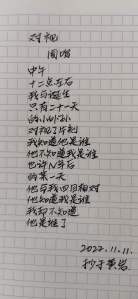 对视
中午
十二点左右
我与诞生
只有二十一天
的小外孙
对视了片刻
我知道他是谁
他不知道我是谁
也许N年后
的某一天
他与我四目相对
他知道我是谁
我却不知道
他是谁了
2022.11.11.